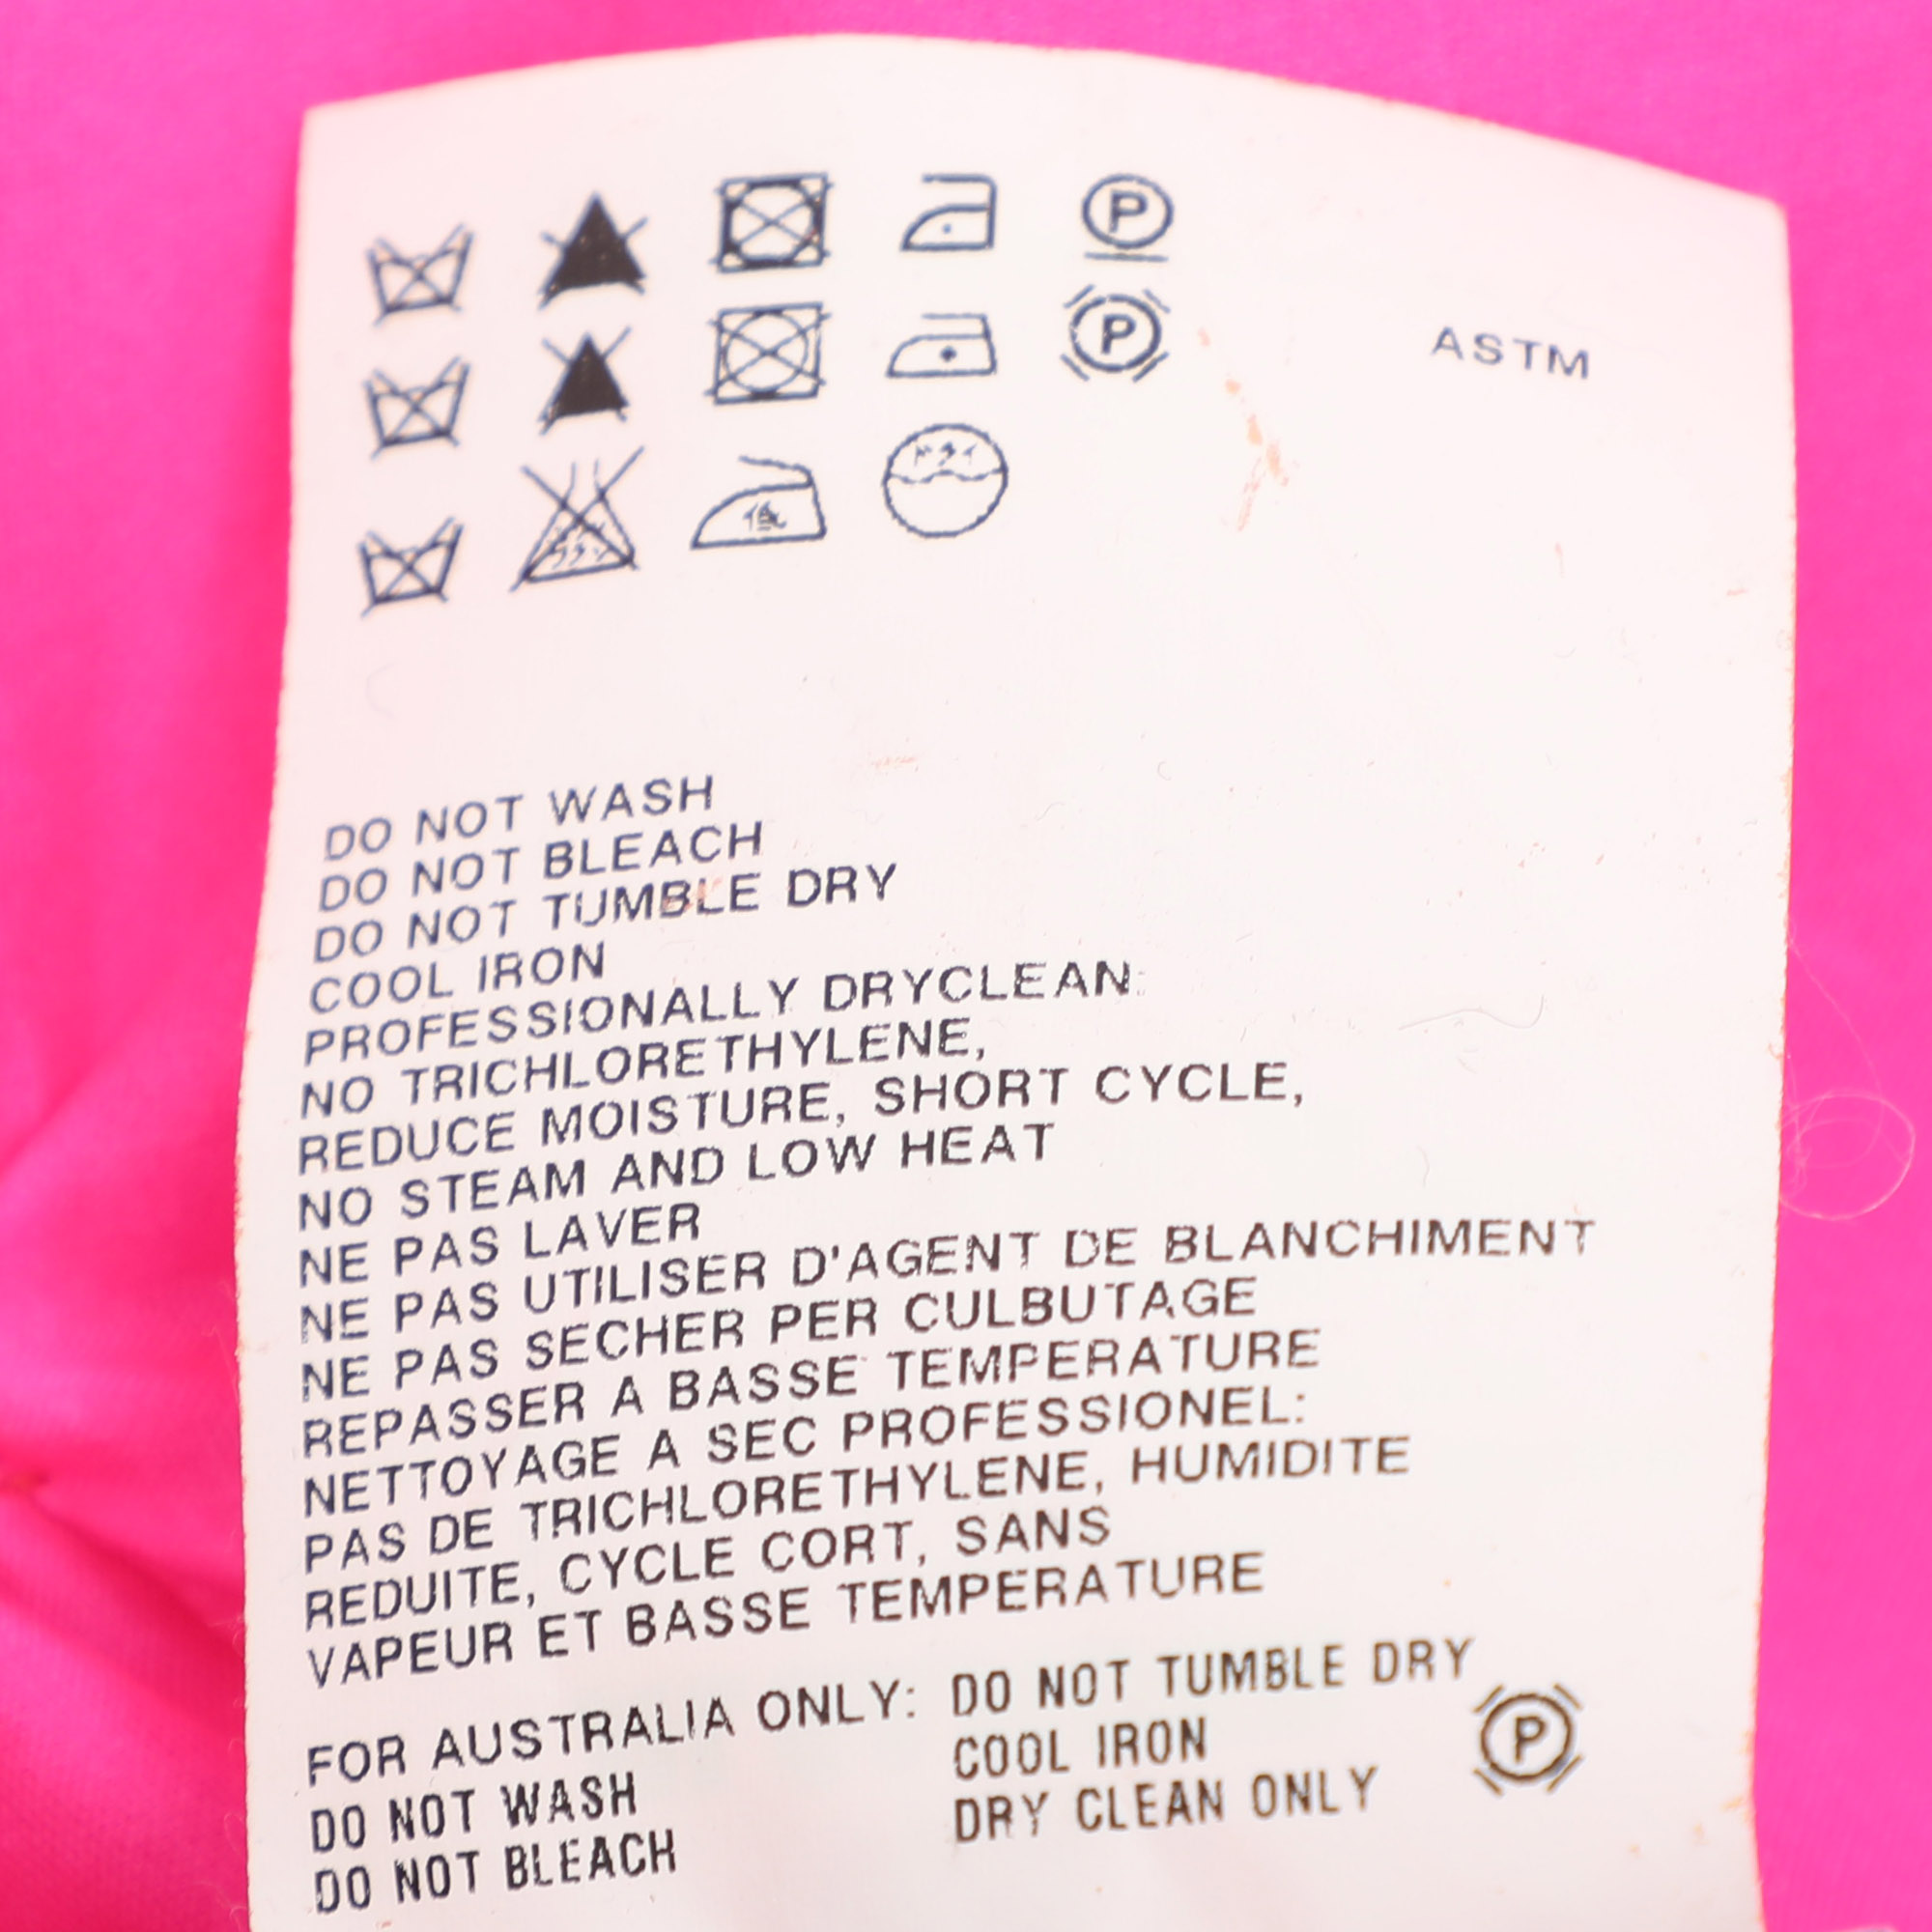 P
P
ASTM
DO NOT WASH
DO NOT BLEACH
DO NOT TUMBLE DRY
COOL IRON
PROFESSIONALLY DRYCLEAN:
NO TRICHLORETHYLENE,
REDUCE MOISTURE, SHORT CYCLE,
NO STEAM AND LOW HEAT
NE PAS LAVER
NE PAS UTILISER D'AGENT DE BLANCHIMENT
NE PAS SECHER PER CULBUTAGE
REPASSER A BASSE TEMPERATURE
NETTOYAGE A SEC PROFESSIONEL:
PAS DE TRICHLORETHYLENE, HUMIDITE
REDUITE, CYCLE CORT, SANS
VAPEUR ET BASSE TEMPERATURE
FOR AUSTRALIA ONLY:
DO NOT WASH
DO NOT BLEACH
DO NOT TUMBLE DRY
COOL IRON
DRY CLEAN ONLY
P